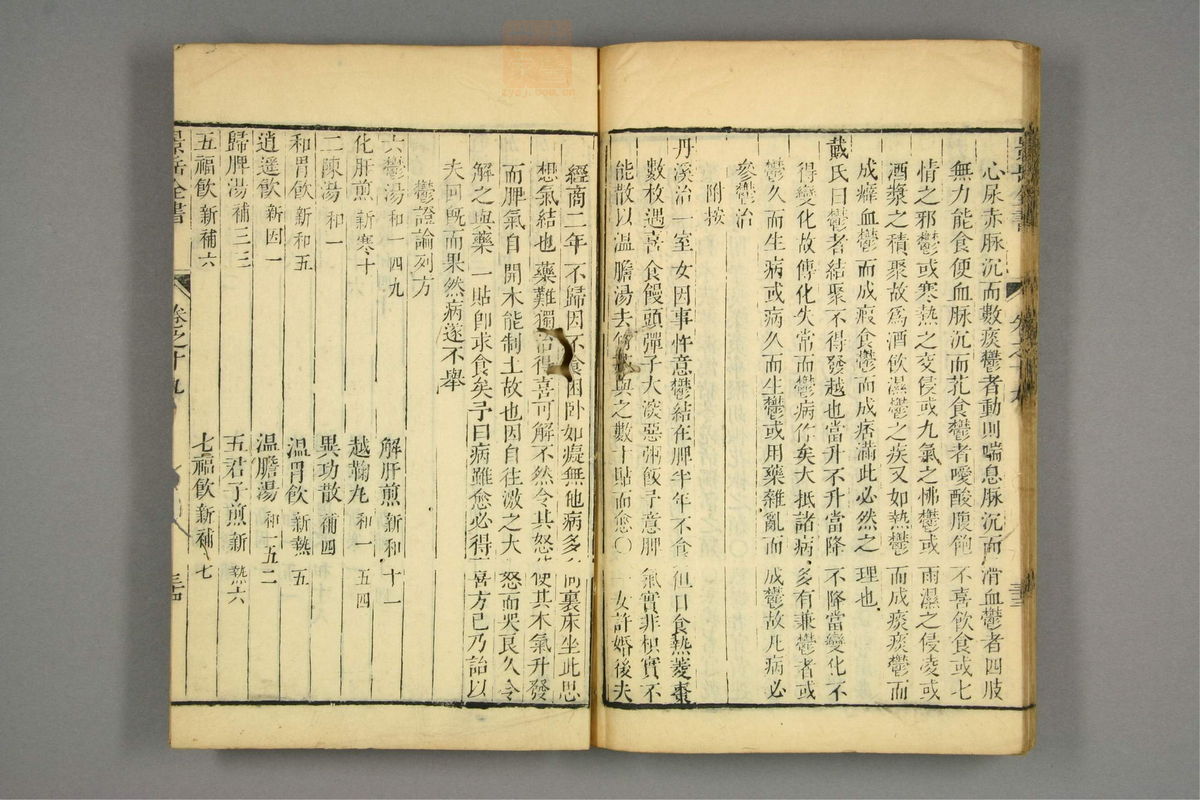 心尿赤脉沉而數痰鬱者動則喘息脉沉而滑血鬱者四肢
無力能食便血脉沉而芤食鬱者噯酸腹飽不喜飲食或七
情之邪鬱或寒熱之交侵或九氣之怫鬱或雨濕之侵凌或
酒漿之積聚故爲酒飲濕鬱之疾又如熱鬱而成痰痰鬱而
成癖血鬱而成瘕食鬱而成痞滿此必然之理也
戴氏曰鬱者結聚不得發越也當升不升當降不降當變化不
得變化故傳化失常而鬱病作矣大抵諸病多有兼鬱者或
鬱久而生病或病久而生鬱或用藥雜亂而成鬱故凡病必
參鬱治
附按
丹溪治一室女因事忤意鬱結在脾半年不食但日食熱菱棗
數枚遇喜食饅頭彈子大深惡粥飯予意脾氣實非枳實不
能散以温膽湯去竹茹與之數十貼而愈〇一女許婚後夫
經商二年不歸因不食困卧如癡無他病多向裏床坐此思
想氣結也藥難獨治得喜可解不然令其怒使其木氣升發
而脾氣自開木能制土故也因自往激之大怒而哭良久令
解之與藥一貼卽求食矣予曰病雖愈必得喜方已乃詒以
夫回既而果然病遂不舉
鬱證論列方
六鬱湯 和一四九 解肝煎 新和十一
化肝煎 新寒十 越鞠丸 和一五四
二陳湯 和一 異功散 補四
和胃飲 新和五 温胃飲 新熱五
逍遥飲 新因一 温膽湯 和一五二
歸脾湯 補三三 五君子煎 新熱六
五福飲 新補六 七福飲 新補七
景岳全書 卷之十九 三四